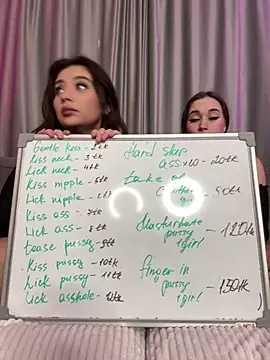 Gentle kiss - 2tk
Kiss neck - 3tk
Lick neck - 4tk
Kiss nipple - 5tk
Lick nipple - 6tk
Kiss ass - 7tk
Lick ass - 8tk
tease pussy - 9tk
Kiss pussy - 10tk
Lick pussy - 11tk
Lick asshole - 12tk
Hard slap
ass x10 - 20tk
take of
90tk
1girl
Masturbate
pussy - 120tk
1girl
finger in
pussy - 150tk
1girl